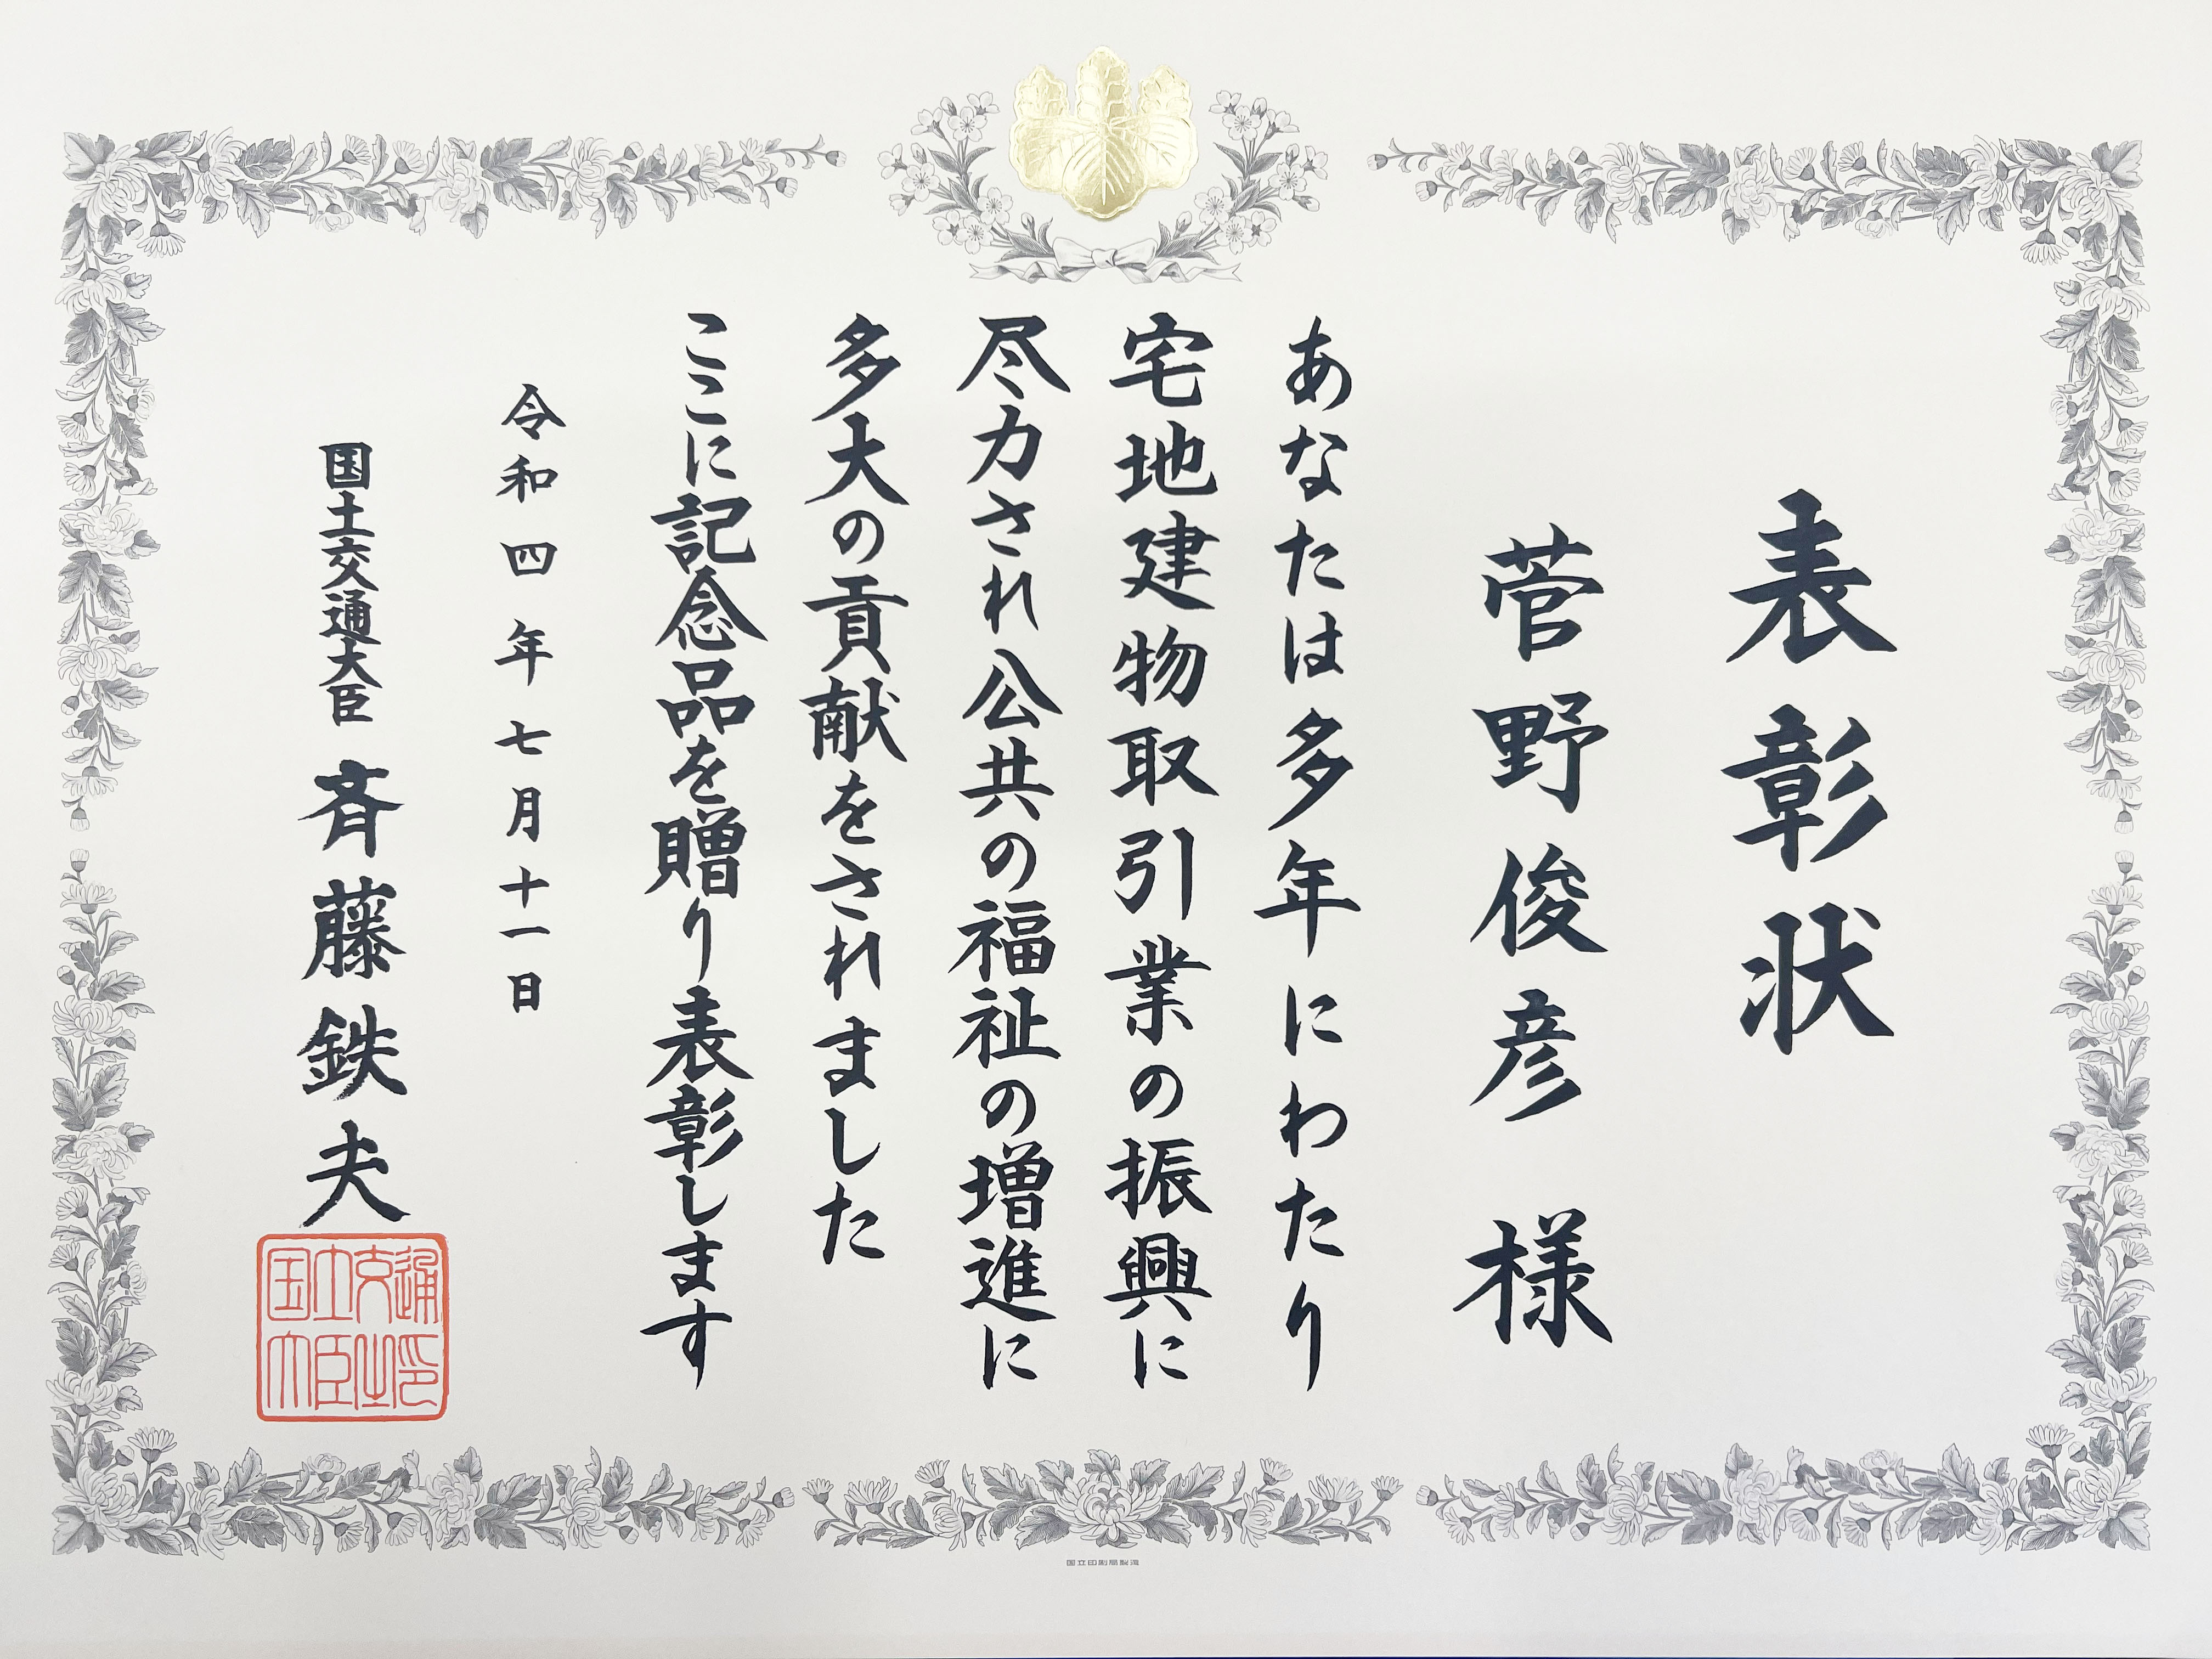 表彰状
菅野俊彦 様
あなたは多年にわたり
宅地建物取引業の振興に
尽力され公共の福祉の増進に
多大の貢献をされました
ここに記念品を贈り表彰します
令和四年七月十一日
国土交通大臣 斉藤鉄夫
国土交通大臣之印
国立印刷局製造